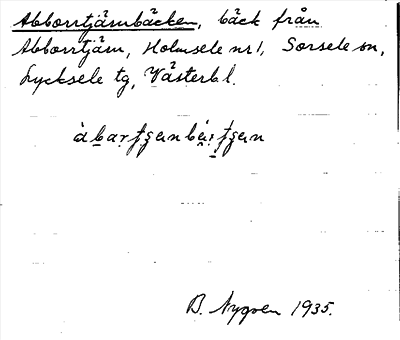 Abborrtjärnbäcken, bäck från
Abborrtjärn, Holmsele nr 1, Sorsele sn,
Lycksele tg, Västerb l.
B. Nygren 1935.